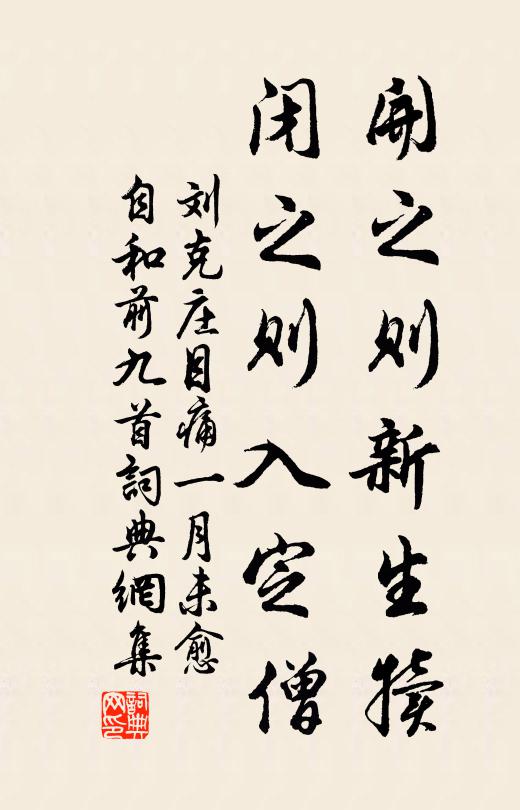 開之则新生犢
闭之则入定僧
刘克庄目痛一月未愈
自和前九首詞典網集
詞典
网印